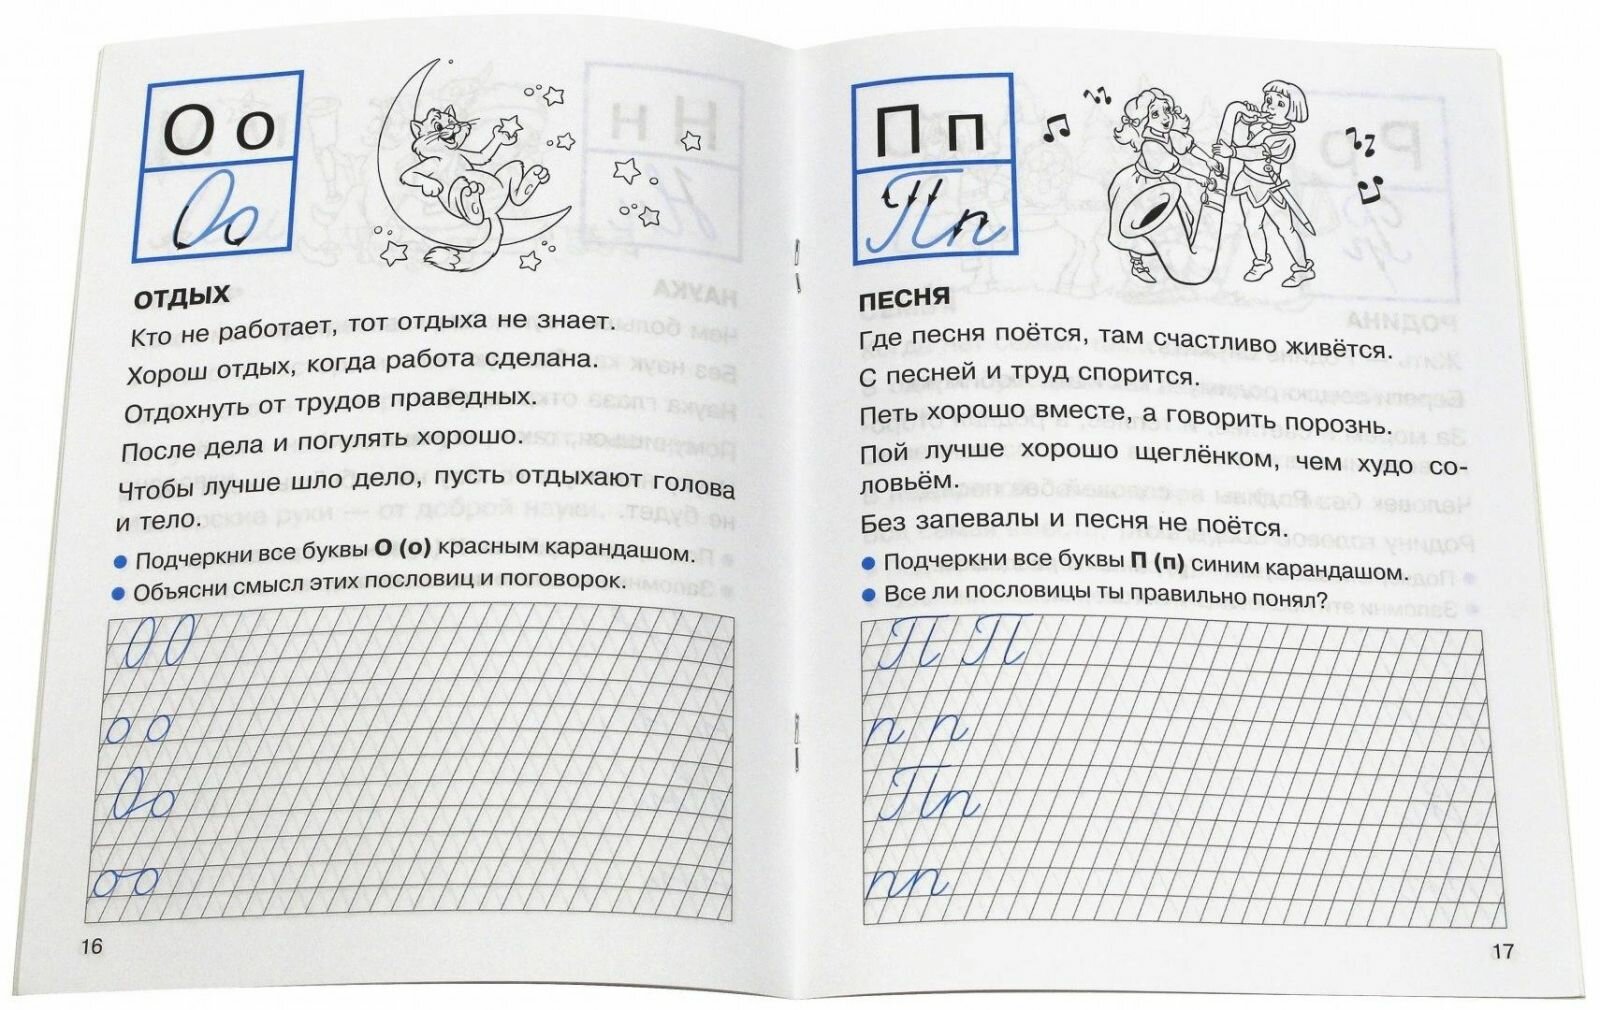 О о
Оо
ОТДЫХ
Кто не работает, тот отдыха не знает.
Хорош отдых, когда работа сделана.
Отдохнуть от трудов праведных.
После дела и погулять хорошо.
Чтобы лучше шло дело, пусть отдыхают голова
и тело.
Подчеркни все буквы О (о) красным карандашом.
Объясни смысл этих пословиц и поговорок.
О О
о о
Оо
оо
16
П п
Пп
ПЕСНЯ
Где песня поётся, там счастливо живётся.
С песней и труд спорится.
Петь хорошо вместе, а говорить порознь.
Пой лучше хорошо щеглёнком, чем худо со-
ловьём.
Без запевалы и песня не поётся.
Подчеркни все буквы П (п) синим карандашом.
Все ли пословицы ты правильно понял?
П П
п п
Пп
пп
17